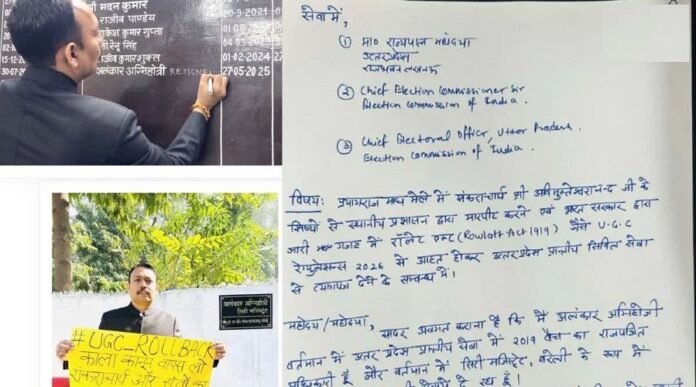 श्री मदन कुमार
20-9-2021
राजीव पाण्डेय
राकेश कुमार गुप्ता
रेनू सिंह
राजीव कुमार शुक्ल
01-02-2024
30-07-20
अलंकार अग्निहोत्री RESIGNED 27-05-2025
अलंकार अग्निहोत्री
सिटी मजिस्ट्रेट
#UGC_ROLLBACK
काला कानून वापस लो
शंकराचार्य और संतों का
सेवा में,
① मा० राज्यपाल महोदया
उत्तर प्रदेश
राजभवन लखनऊ
② Chief Election Commissioner Sir
Election Commission of India.
③ Chief Electoral Officer, Uttar Pradesh
Election Commission of India.
विषय: प्रयागराज माघ मेले में शंकराचार्य श्री अविमुक्तेश्वरानन्द जी के
शिष्यों से स्थानीय प्रशासन द्वारा मारपीट करने एवं भारत सरकार द्वारा
जारी गजट में रॉलेट एक्ट (Rowlatt Act 1919) जैसे U.G.C
रेगुलेसन्स 2026 से आहत होकर उत्तर प्रदेश प्रान्तीय सिविल सेवा
से त्यागपत्र देने के सम्बन्ध में।
महोदय/महोदया,
सादर अवगत कराना है कि मैं अलंकार अग्निहोत्री
वर्तमान में उत्तर प्रदेश प्रान्तीय सेवा में 2019 बैच का राजपत्रित
अधिकारी हूँ और वर्तमान में सिटी मजिस्ट्रेट, बरेली के रूप में